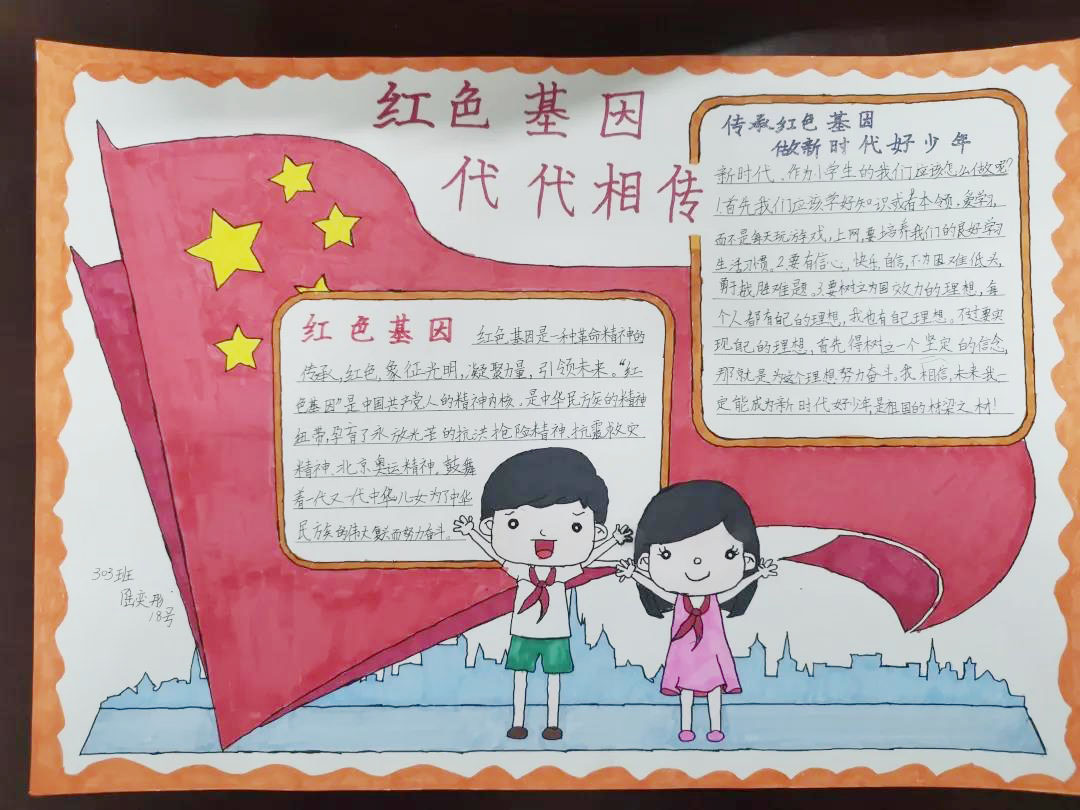 红色基因
代代相传
传承红色基因
做新时代好少年
新时代、作为小学生的我们应该怎么做呢?
1.首先我们应该学好知识或者本领,爱学习,
而不是每天玩游戏,上网,要培养我们的良好学习
生活习惯。2.要有信心,快乐,自信,不为困难低头,
勇于战胜难题。3.要树立为国效力的理想,每
个人都有自己的理想,我也有自己理想。不过要实
现自己的理想,首先得树立一个坚定的信念,
那就是为这个理想努力奋斗。我相信,未来我一
定能成为新时代好少年,是祖国的栋梁之材!
红色基因 红色基因是一种革命精神的
传承,红色,象征光明,凝聚力量,引领未来。“红
色基因”是中国共产党人的精神内核。是中华民族的精神
纽带,孕育了永放光芒的抗洪抢险精神、抗震救灾
精神、北京奥运精神。鼓舞
着一代又一代中华儿女为了中华
民族的伟大复兴而努力奋斗。
303班
奕彤
18号